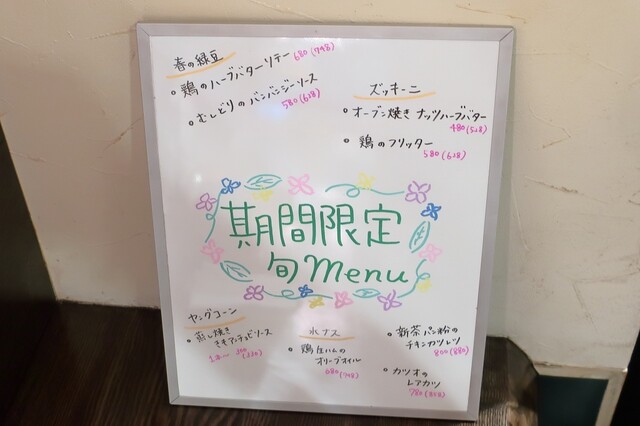 春の緑豆
・鶏のハーブバターソテー 680(748)
・むしどりのバンバンジーソース
580(638)
ズッキーニ
・オーブン焼き ナッツハーブバター
480(528)
・鶏のフリッター
580(638)
期間限定
旬menu
ヤングコーン
・蒸し焼き
アンチョビソース
300(330)
水ナス
・鶏生ハムの
オリーブオイル
680(748)
・新茶パン粉の
チキンカツレツ
800(880)
・カツオの
レアカツ
780(858)